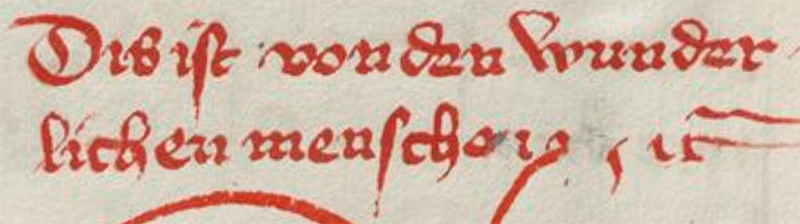 Dis ist von den wunder
lichen menschen